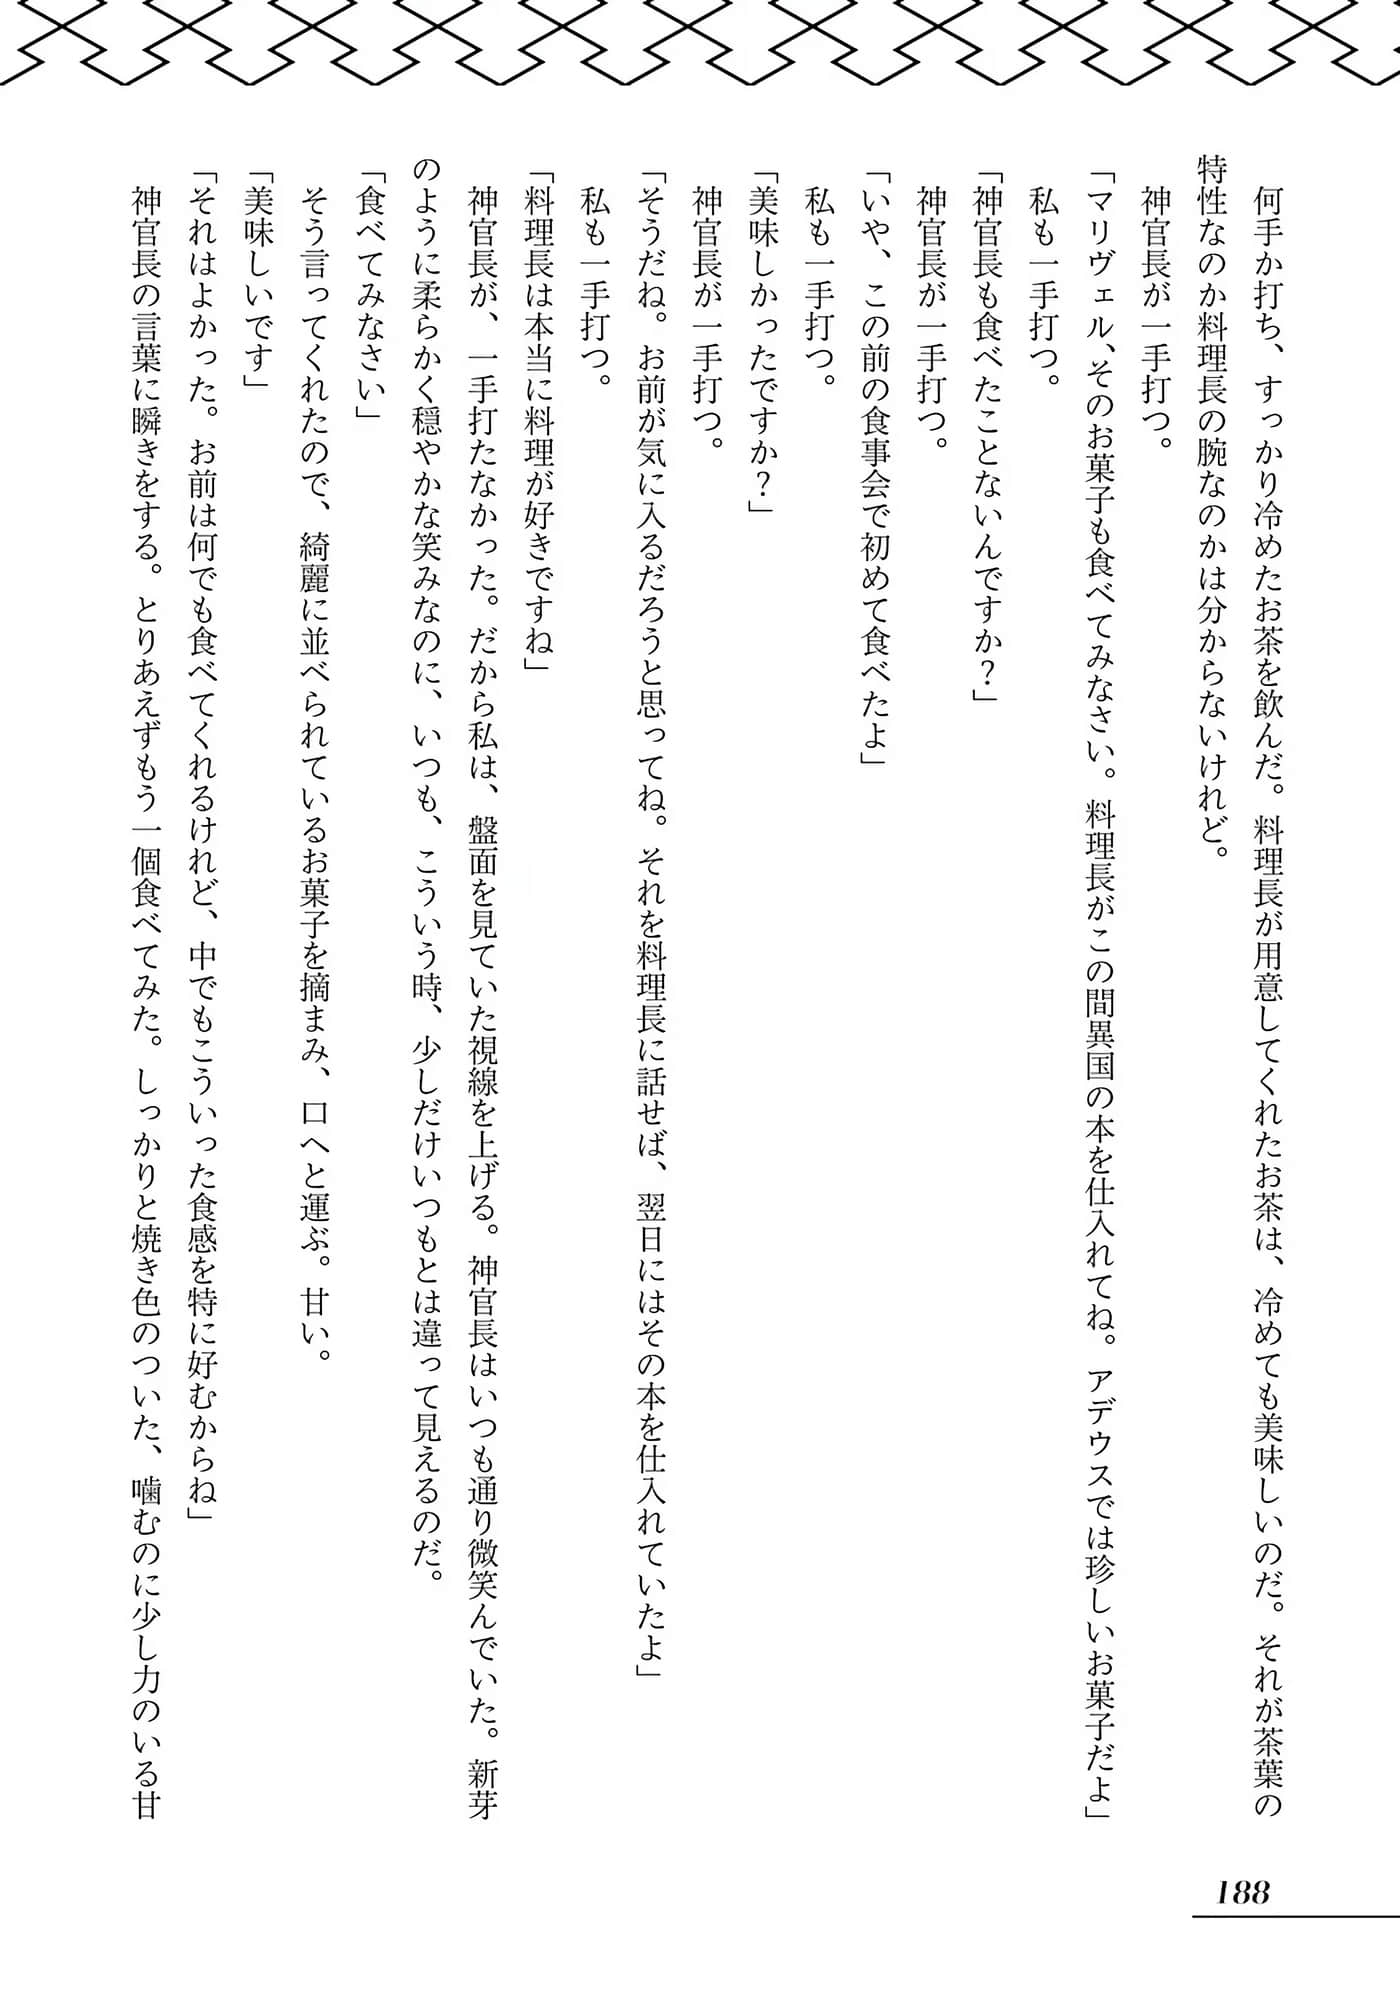 何手か打ち、すっかり冷めたお茶を飲んだ。料理長が用意してくれたお茶は、冷めても美味しいのだ。それが茶葉の
特性なのか料理長の腕なのかは分からないけれど。
神官長が一手打つ。
「マリヴェル、そのお菓子も食べてみなさい。料理長がこの間異国の本を仕入れてね。アデウスでは珍しいお菓子だよ」
私も一手打つ。
「神官長も食べたことないんですか？」
神官長が一手打つ。
「いや、この前の食事会で初めて食べたよ」
私も一手打つ。
「美味しかったですか？」
神官長が一手打つ。
「そうだね。お前が気に入るだろうと思ってね。それを料理長に話せば、翌日にはその本を仕入れていたよ」
私も一手打つ。
「料理長は本当に料理が好きですね」
神官長が、一手打たなかった。だから私は、盤面を見ていた視線を上げる。神官長はいつも通り微笑んでいた。新芽
のように柔らかく穏やかな笑みなのに、いつも、こういう時、少しだけいつもとは違って見えるのだ。
「食べてみなさい」
そう言ってくれたので、綺麗に並べられているお菓子を摘まみ、口へと運ぶ。甘い。
「美味しいです」
「それはよかった。お前は何でも食べてくれるけれど、中でもこういった食感を特に好むからね」
神官長の言葉に瞬きをする。とりあえずもう一個食べてみた。しっかりと焼き色のついた、噛むのに少し力のいる甘
188